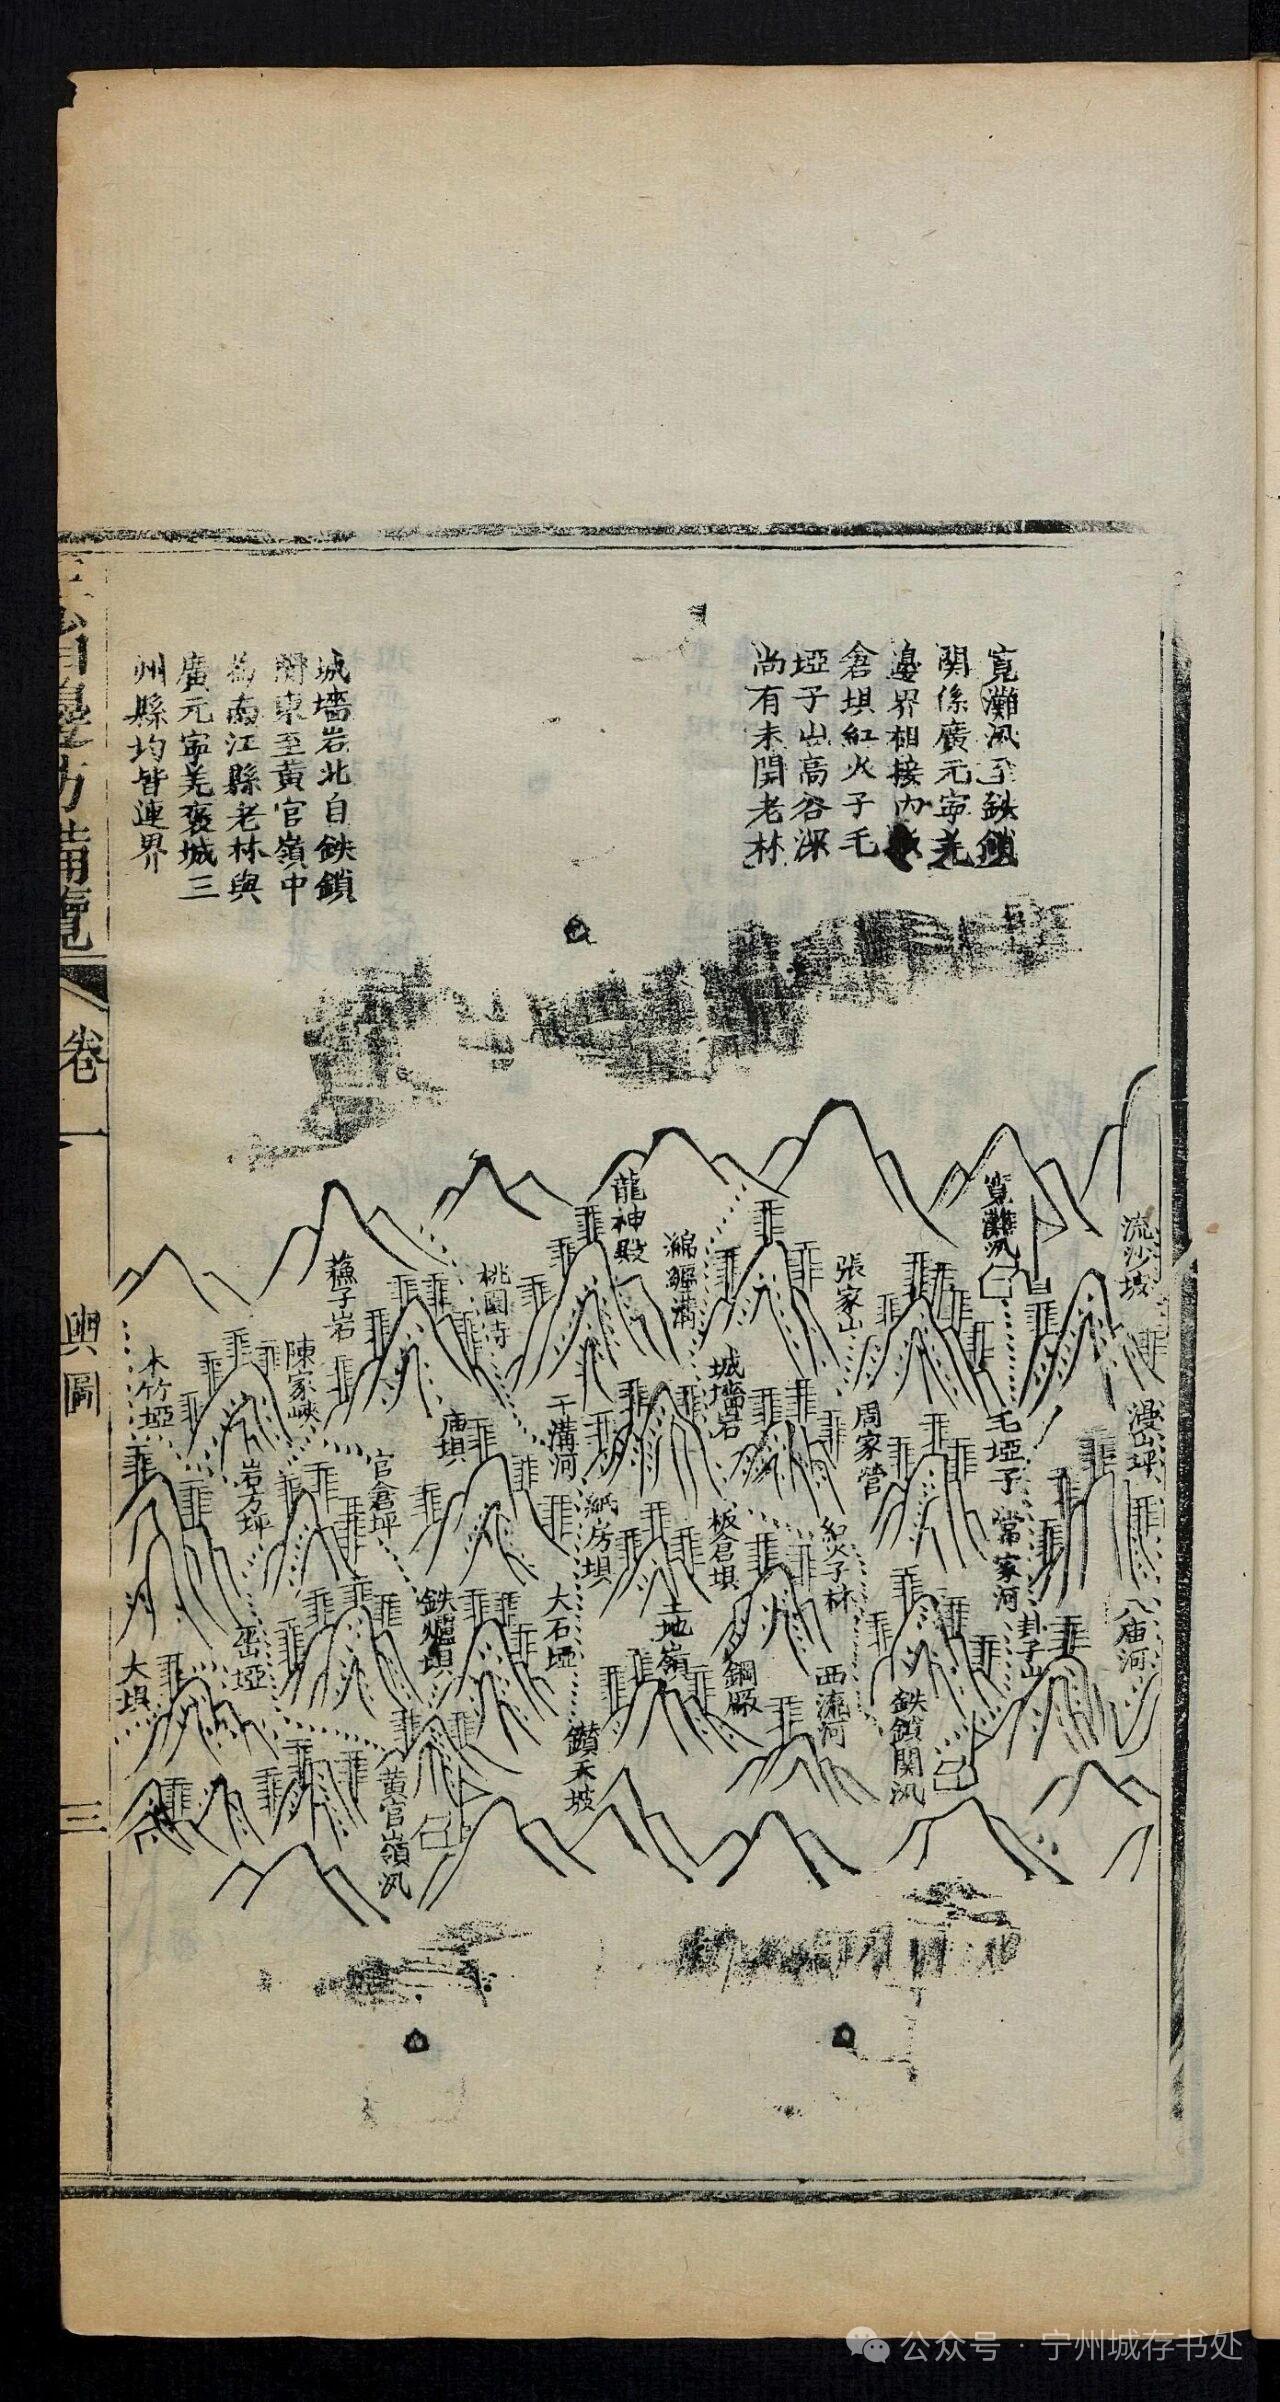 寛灘汛至鉄鎖
関係廣元寧羌
邊界相接內
倉垻紅火子毛
埡子山高谷深
尚有未開老林
城墻岩北自鉄鎖
関東至黃官嶺中
為南江縣老林與
廣元寧羌褒城三
州縣均皆連界
流沙坡
寛灘汛
漫山坪
八庙河
毛埡子
常家河
卦子山
張家山
周家營
紅火子林
西流河
鉄鎖関汛
龍神殿
城墻岩
板倉垻
土地嶺
銅厰
干溝河
紙房垻
大石埡
鑚天坡
桃園寺
庙垻
蕪子岩
陳家峽
官倉坪
鉄爐垻
黃官嶺汛
木竹埡
岩方坪
埡
大垻
邊防備覽
卷一
輿圖
三
公众号 · 宁州城存书处